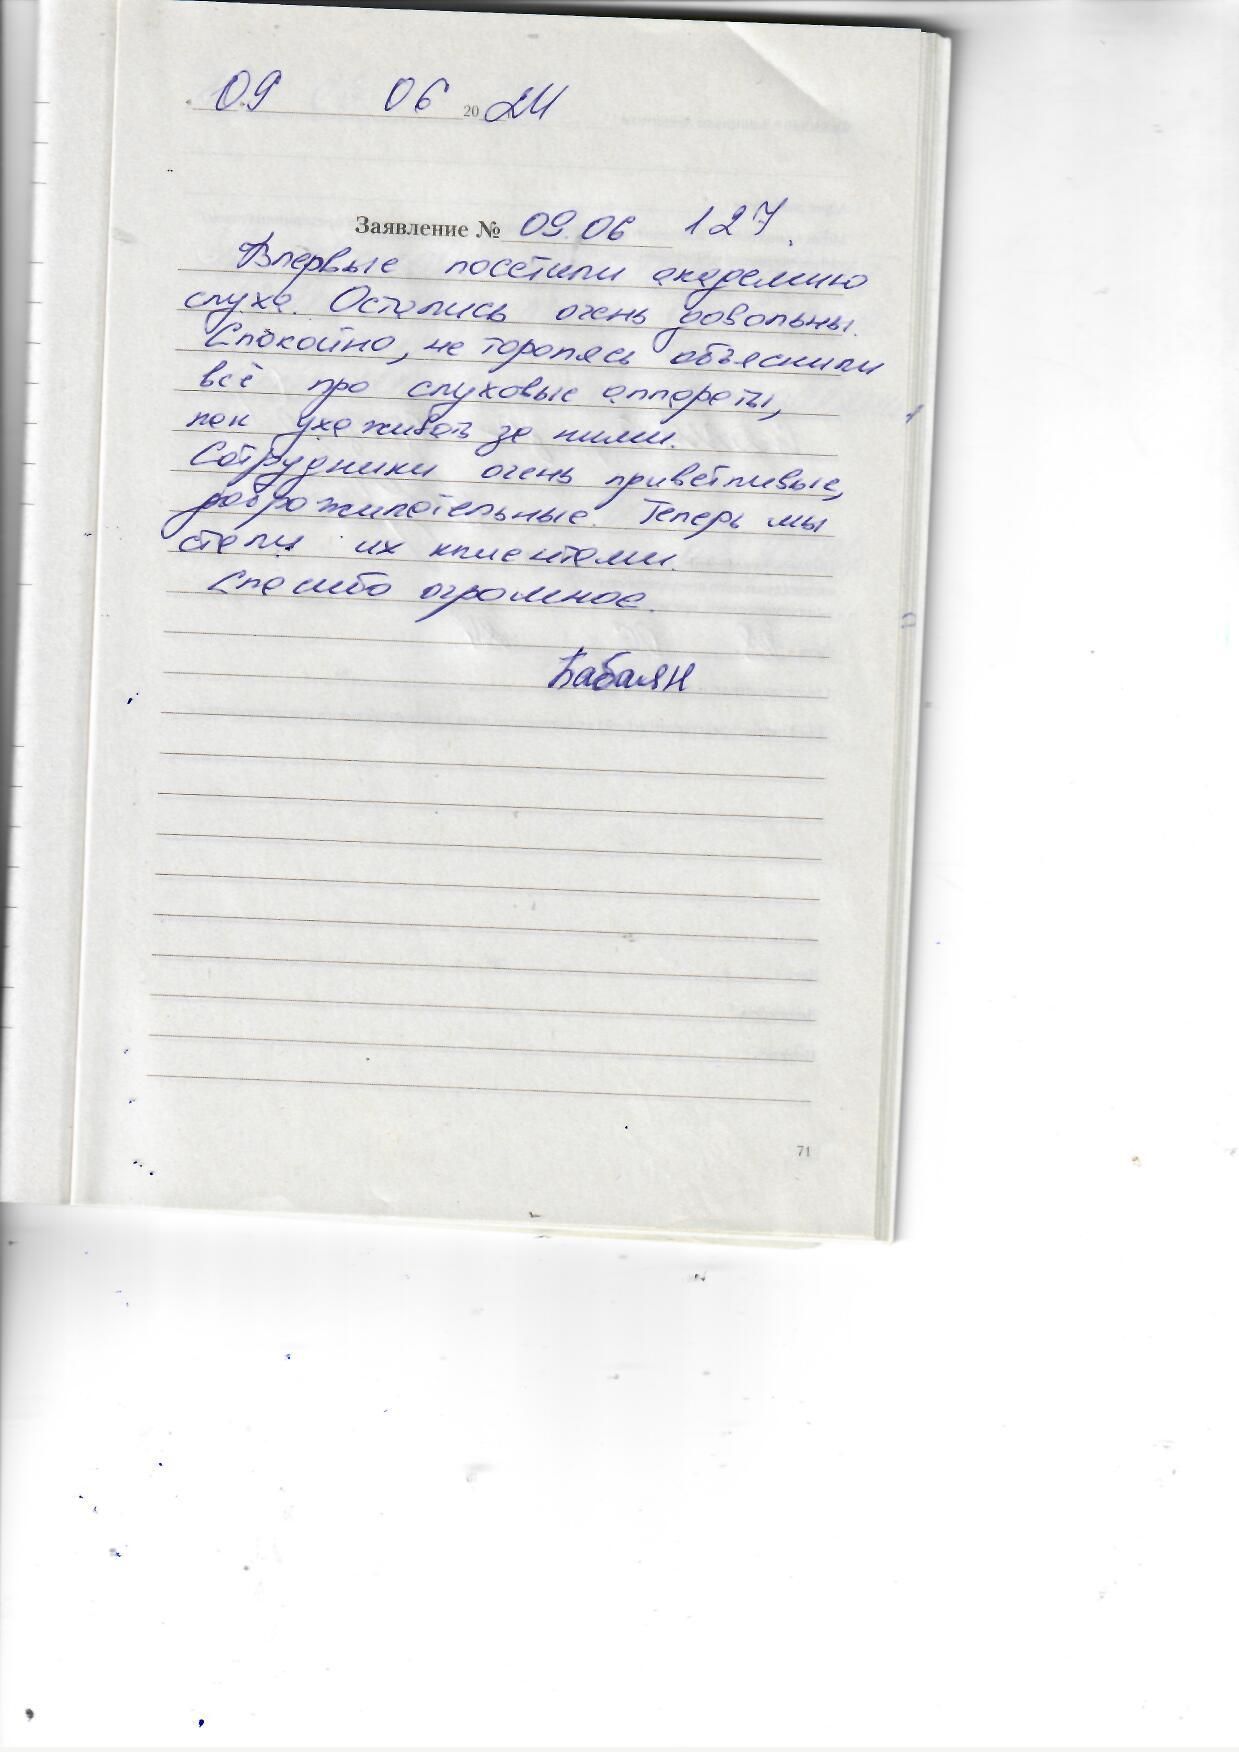 09 06 2024
Заявление № 09.06 127.
Впервые посетили академию
слуха. Остались очень довольны.
Спокойно, не торопясь объяснили
всё про слуховые аппараты,
как ухаживать за ними.
Сотрудники очень приветливые,
доброжелательные. Теперь мы
стали их клиентами.
Спасибо огромное.
Бабаян
71